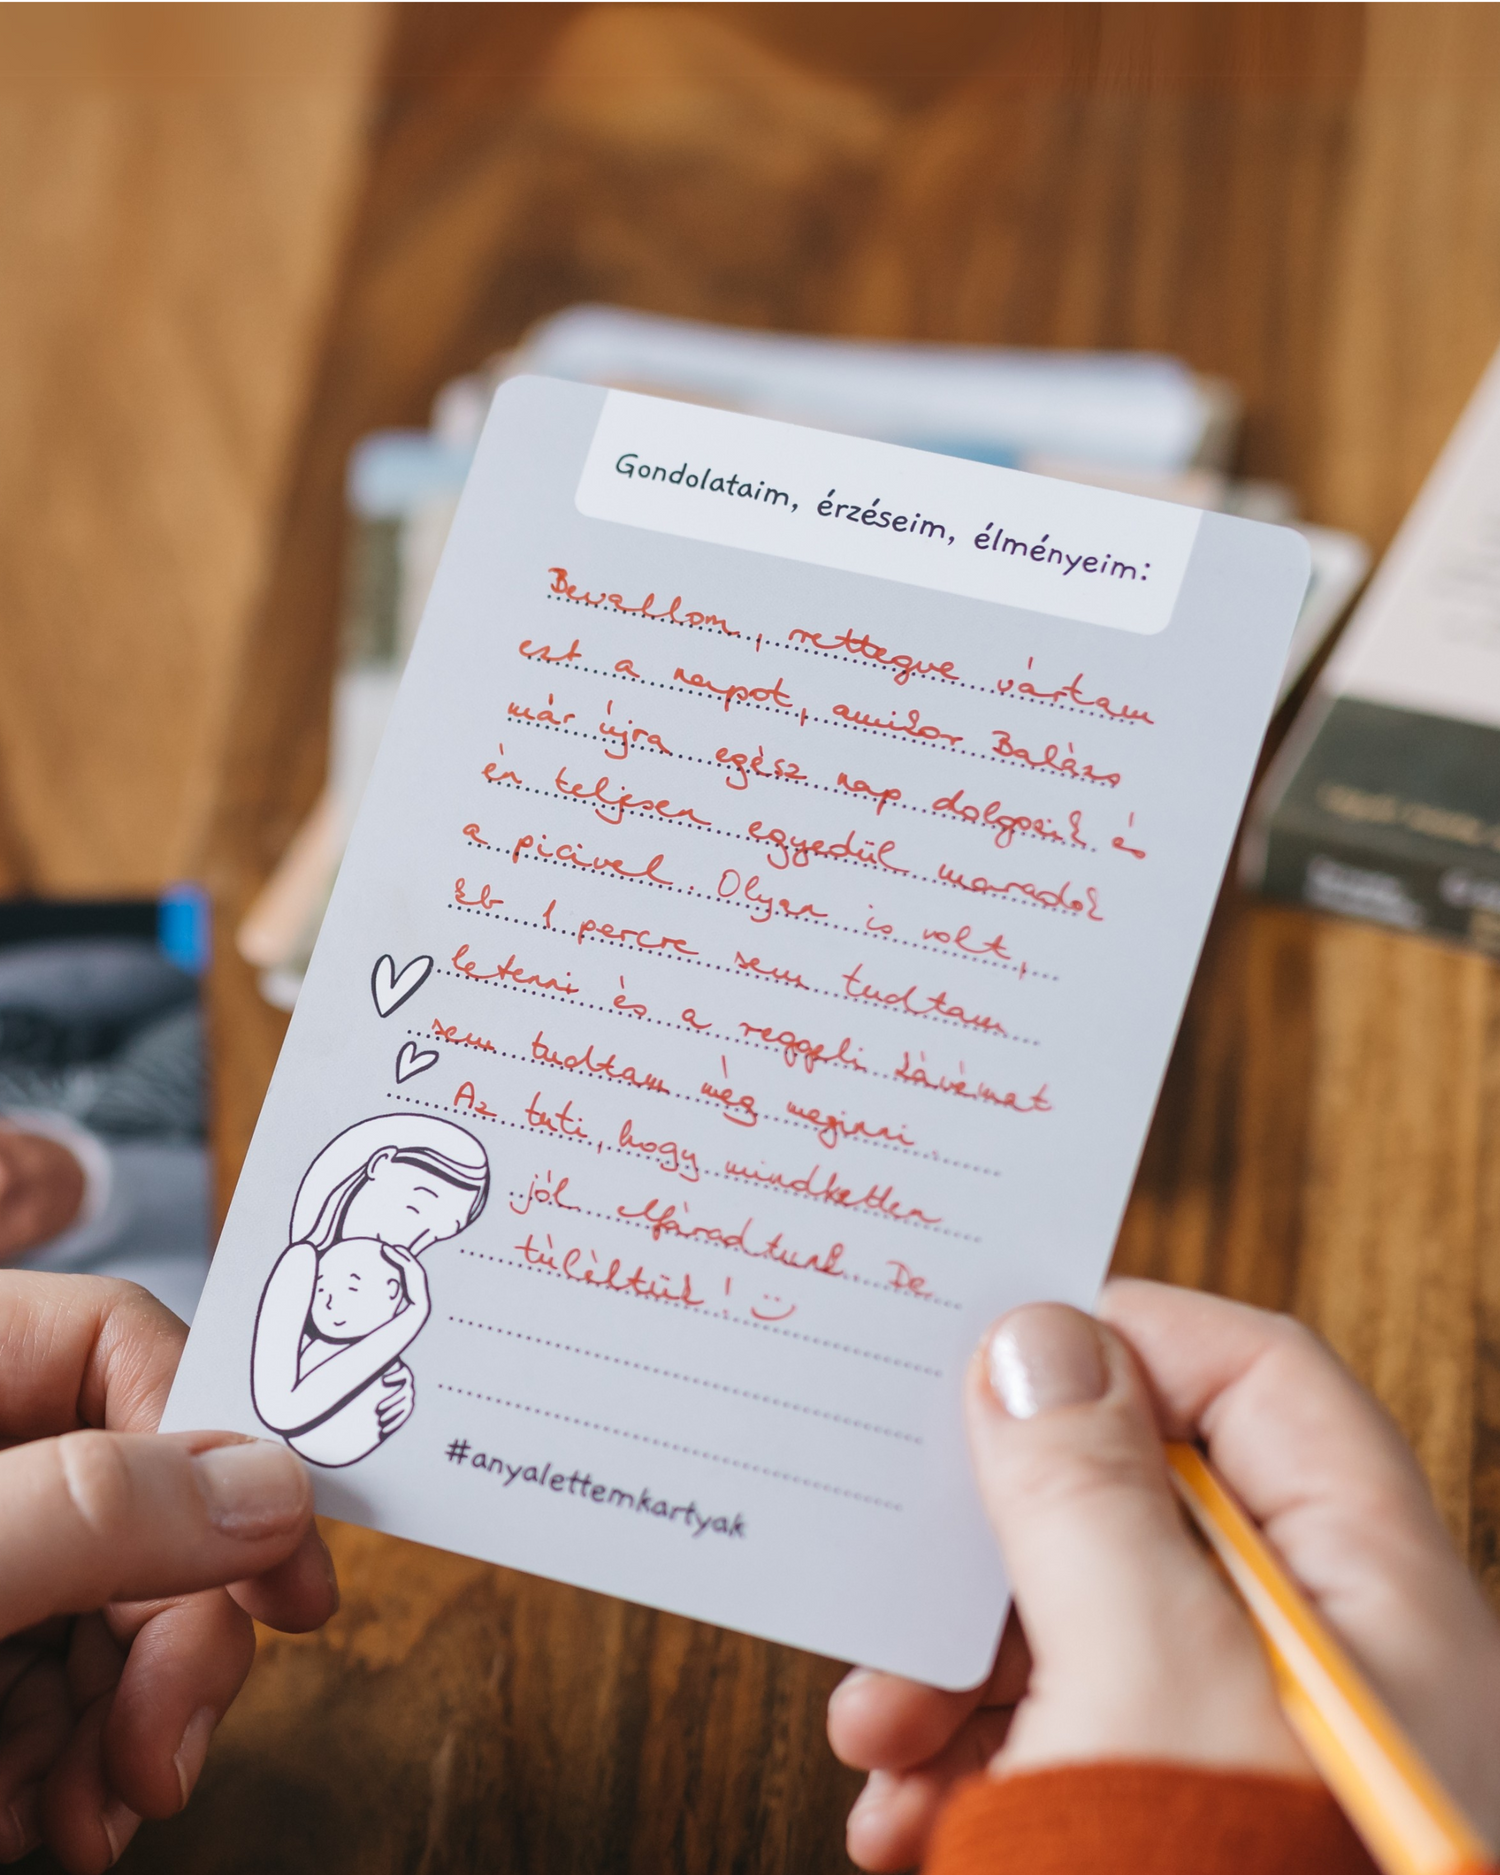 Gondolataim, érzéseim, élményeim:
Bevallom, rettegve vártam
ezt a napot, amikor Balázs
már újra egész nap dolgozik és
én teljesen egyedül maradok
a picivel. Olyan is volt,
kb 1 percre sem tudtam
letenni és a reggeli kávémat
sem tudtam még meginni.
Az tuti, hogy mindketten
jól elfáradtunk. De
túléltük! :)
#anyalettemkartyak